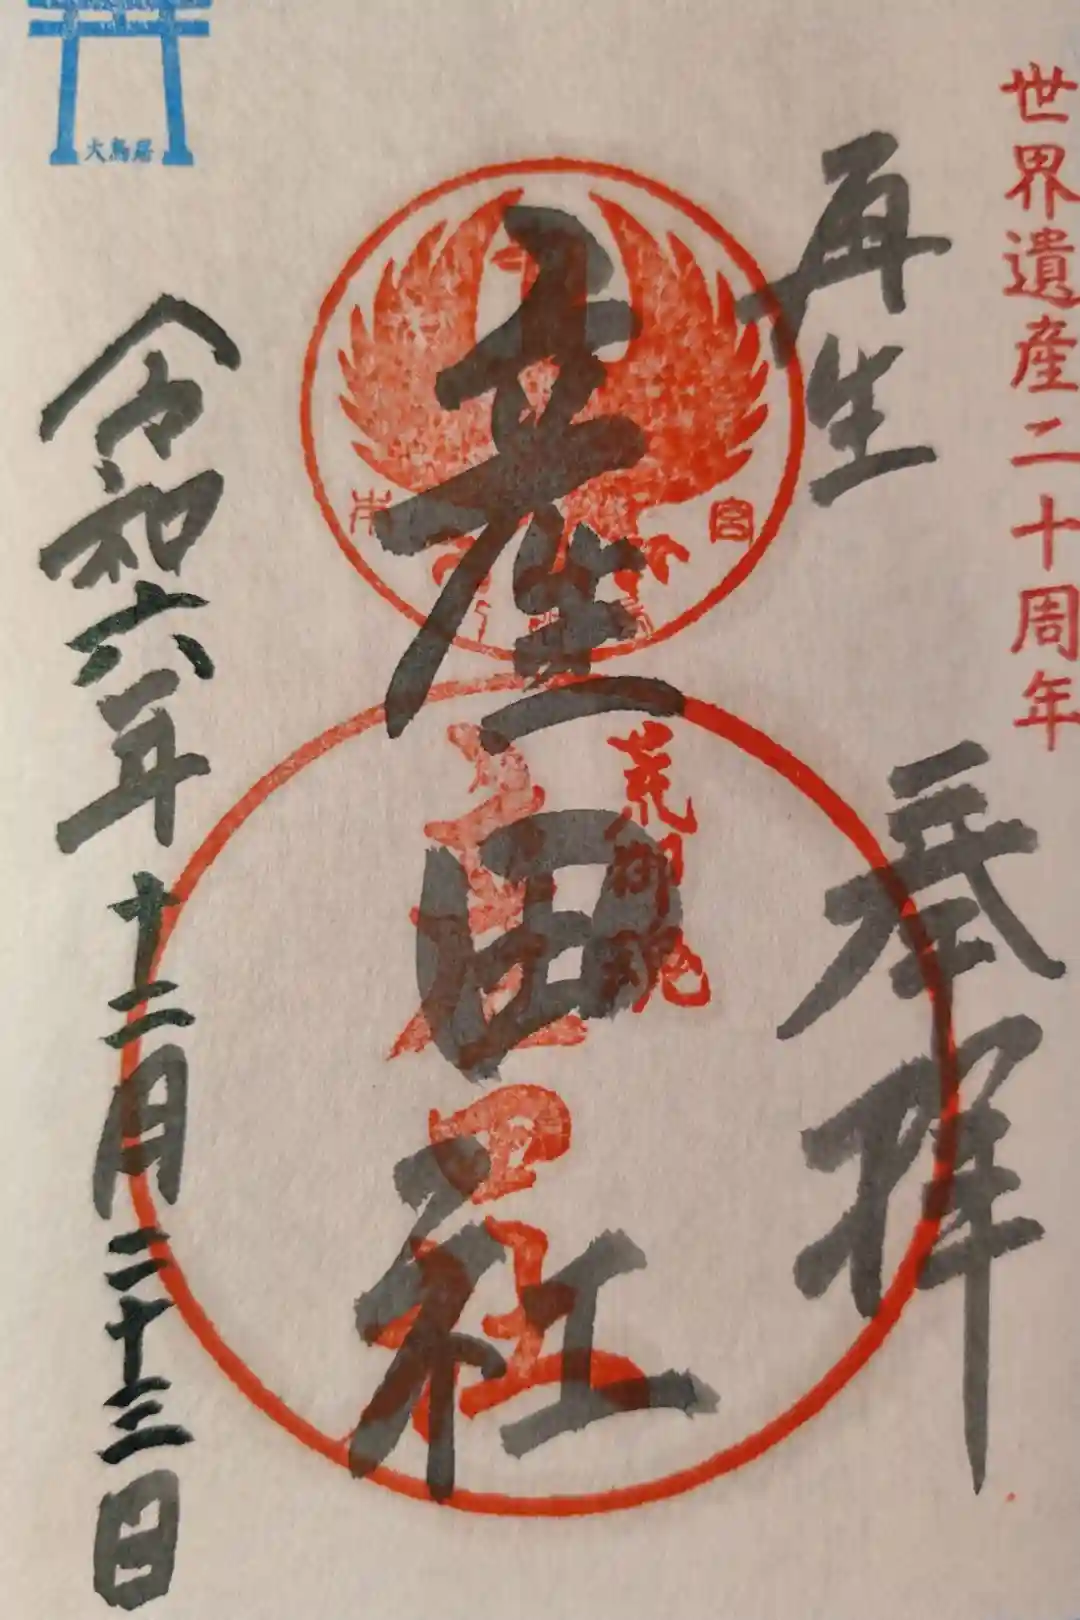 世界遺産二十周年
再生
奉拝
産田社
荒御魂
産田社
令和六年十二月二十三日
大鳥居